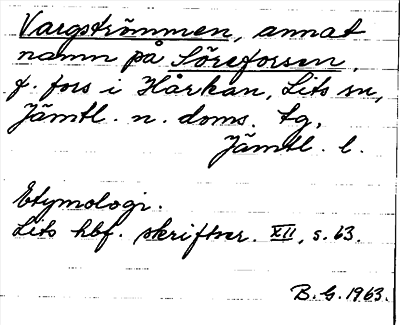 Vargströmmen, annat
namn på Söreforsen,
f. fors i Hårkan, Lits sn,
Jämtl. n. doms. tg,
Jämtl. l.
Etymologi.
Lits hbf. skriftser. XII, s. 63.
B. G. 1963.